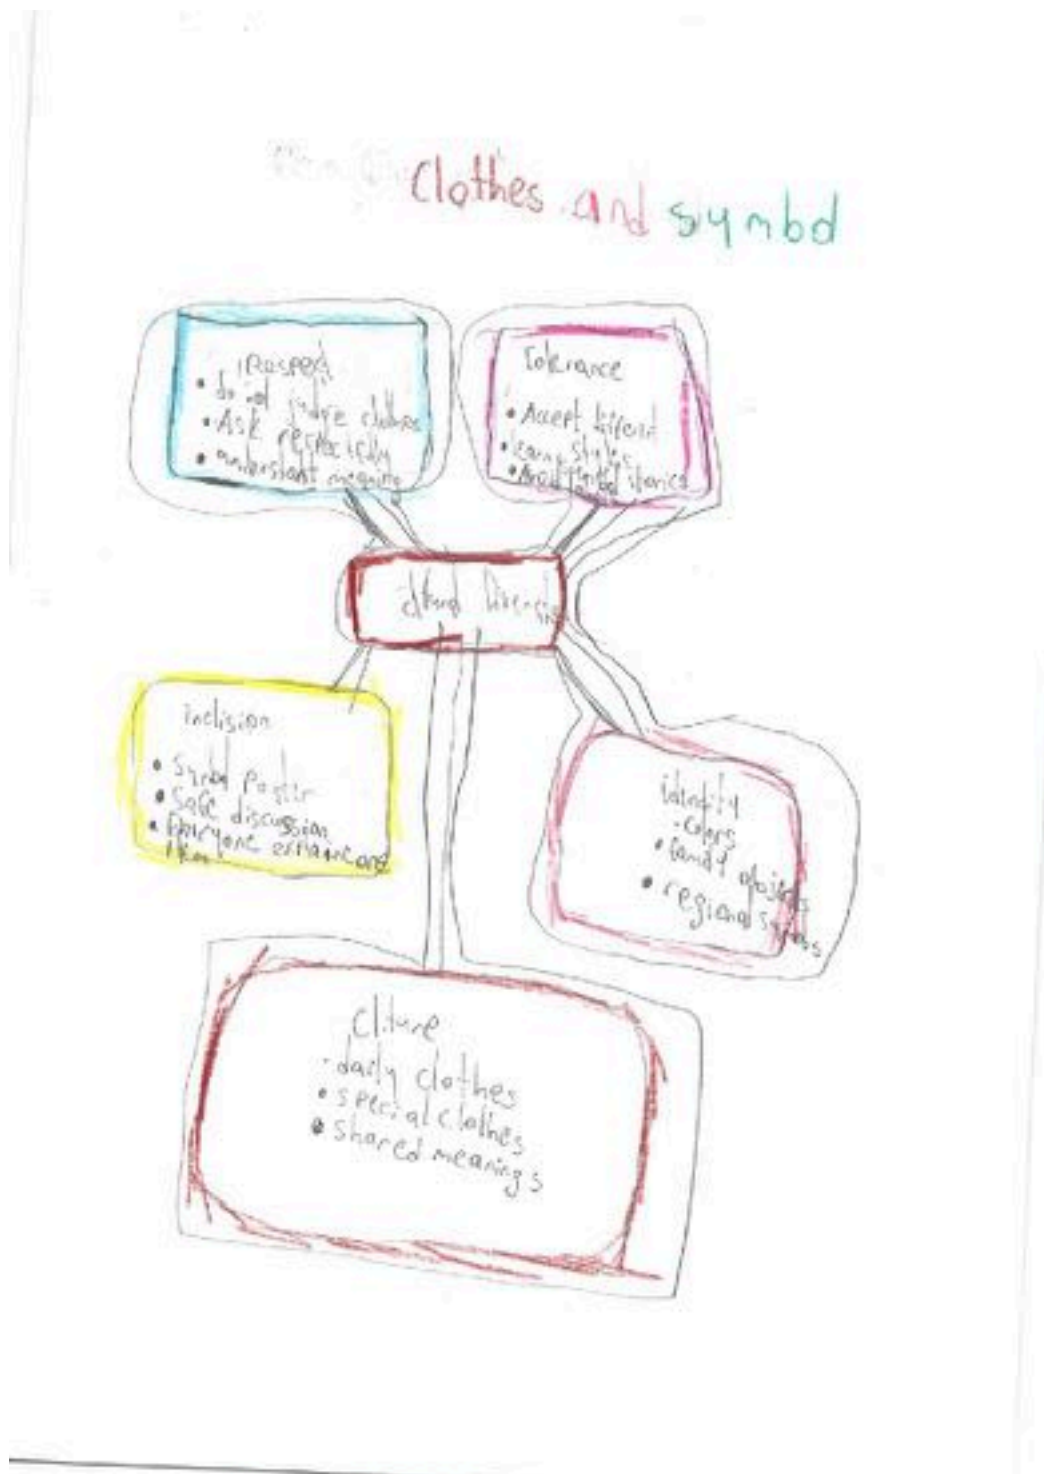 Clothes and symbol
Respect
• do not judge clothes
• Ask respectfully
• understant meaning
Tolerance
• Accept different
• learn styles
• Avoid
inclision
• Symbol Poster
• Safe discussion
• Everyone
identity
• colors
• family objects
• regional
Cliture
• daily clothes
• special clothes
• shared meanings